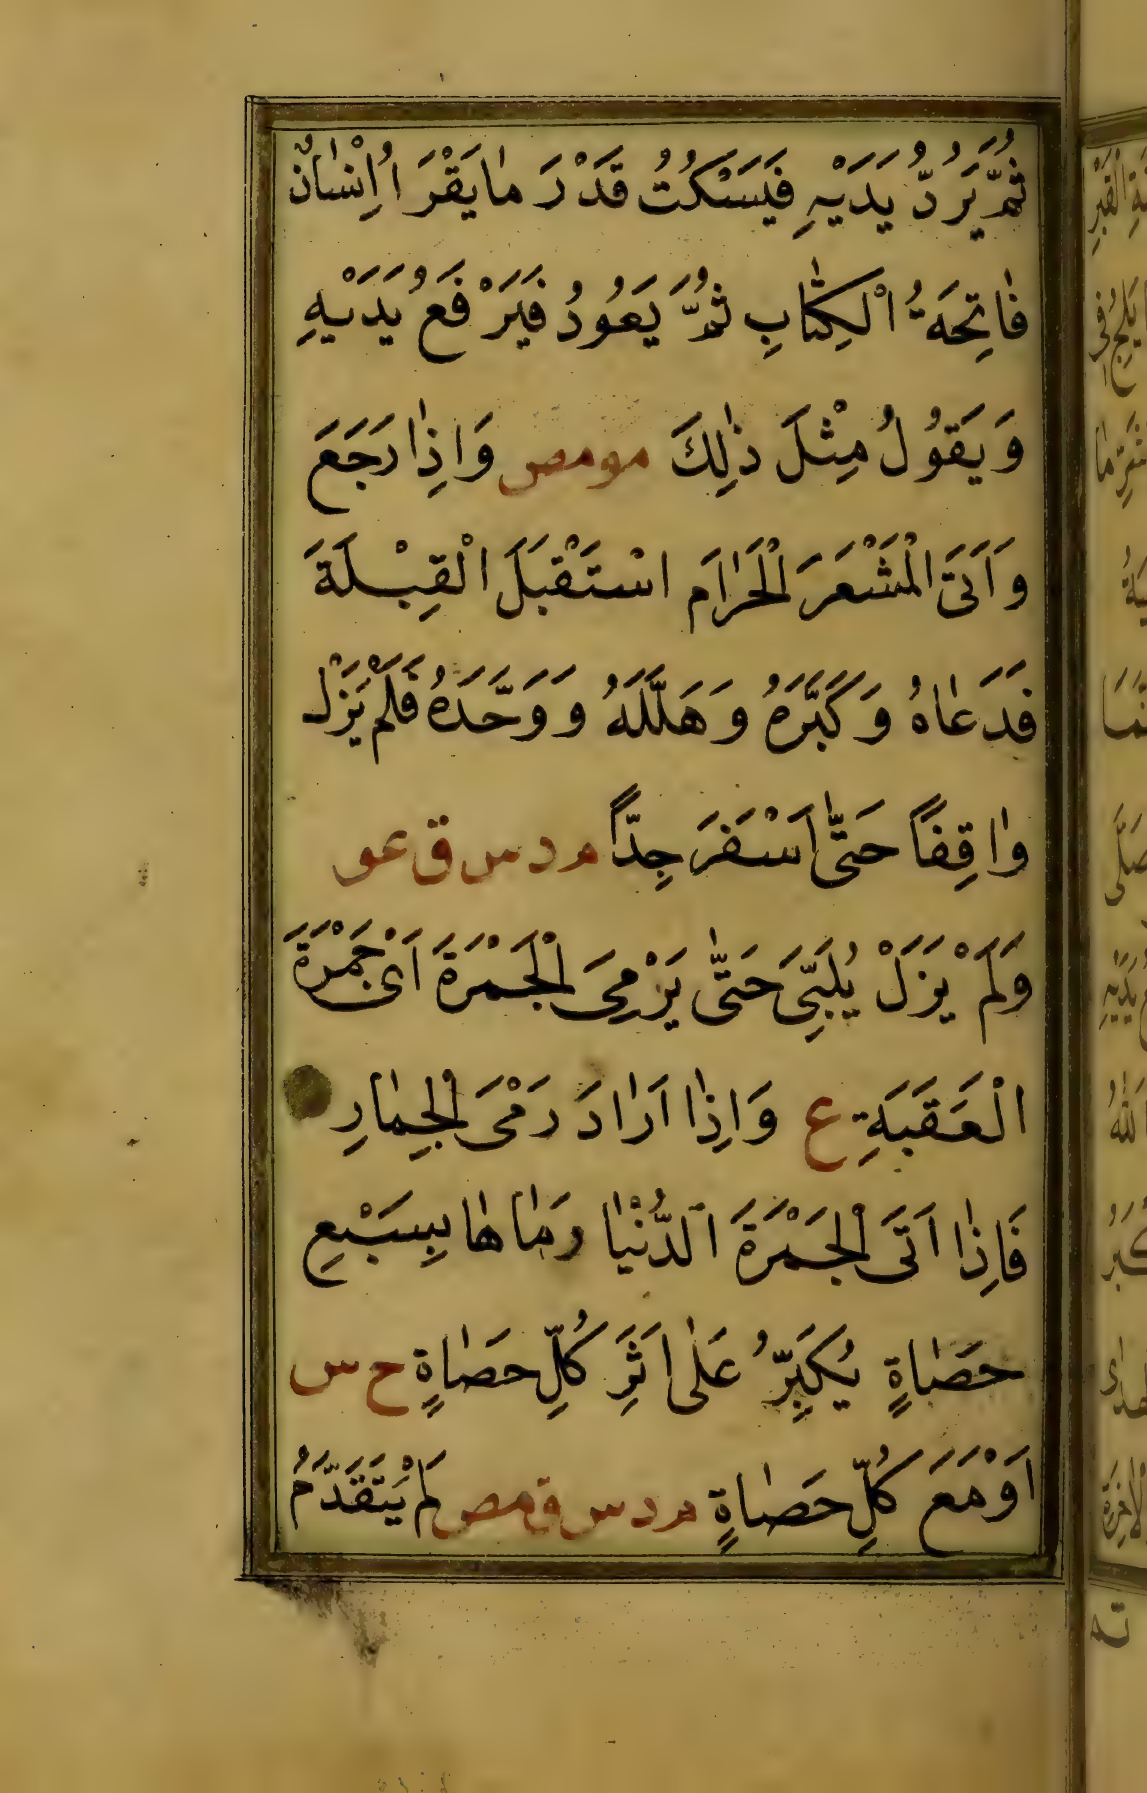 ثُمَّ يَرُدُّ يَدَيْهِ فَيَسْكُتُ قَدْرَ مَا يَقْرَ اُ اِنْسَانٌ
فَاتِحَةُ الْكِتَابِ ثُمَّ يَعُودُ فَيَرْفَعُ يَدَيْهِ
وَيَقُولُ مِثْلَ ذٰلِكَ مو مص وَاِذَا رَجَعَ
وَاَتَى الْمَشْعَرَ الْحَرَامَ اسْتَقْبَلَ الْقِبْلَةَ
فَدَعَاهُ وَكَبَّرَهُ وَهَلَّلَهُ وَوَحَّدَهُ فَلَمْ يَزَلْ
وَاقِفًا حَتّٰى اَسْفَرَ جِدًّا م د س ق عو
وَلَمْ يَزَلْ يُلَبِّىَ حَتّٰى يَرْمِىَ الْجَمْرَةَ اَىْ جَمْرَةَ
الْعَقَبَةِ ع وَاِذَا اَرَادَ رَمْىَ الْجِمَارِ
فَاِذَا اَتَى الْجَمْرَةَ الدُّنْيَا رَمَاهَا بِسَبْعِ
حَصَاةٍ يُكَبِّرُ عَلٰى اَثَرِ كُلِّ حَصَاةٍ خ س
اَوْ مَعَ كُلِّ حَصَاةٍ م د س ق مص لَمْ يَتَقَدَّمُ